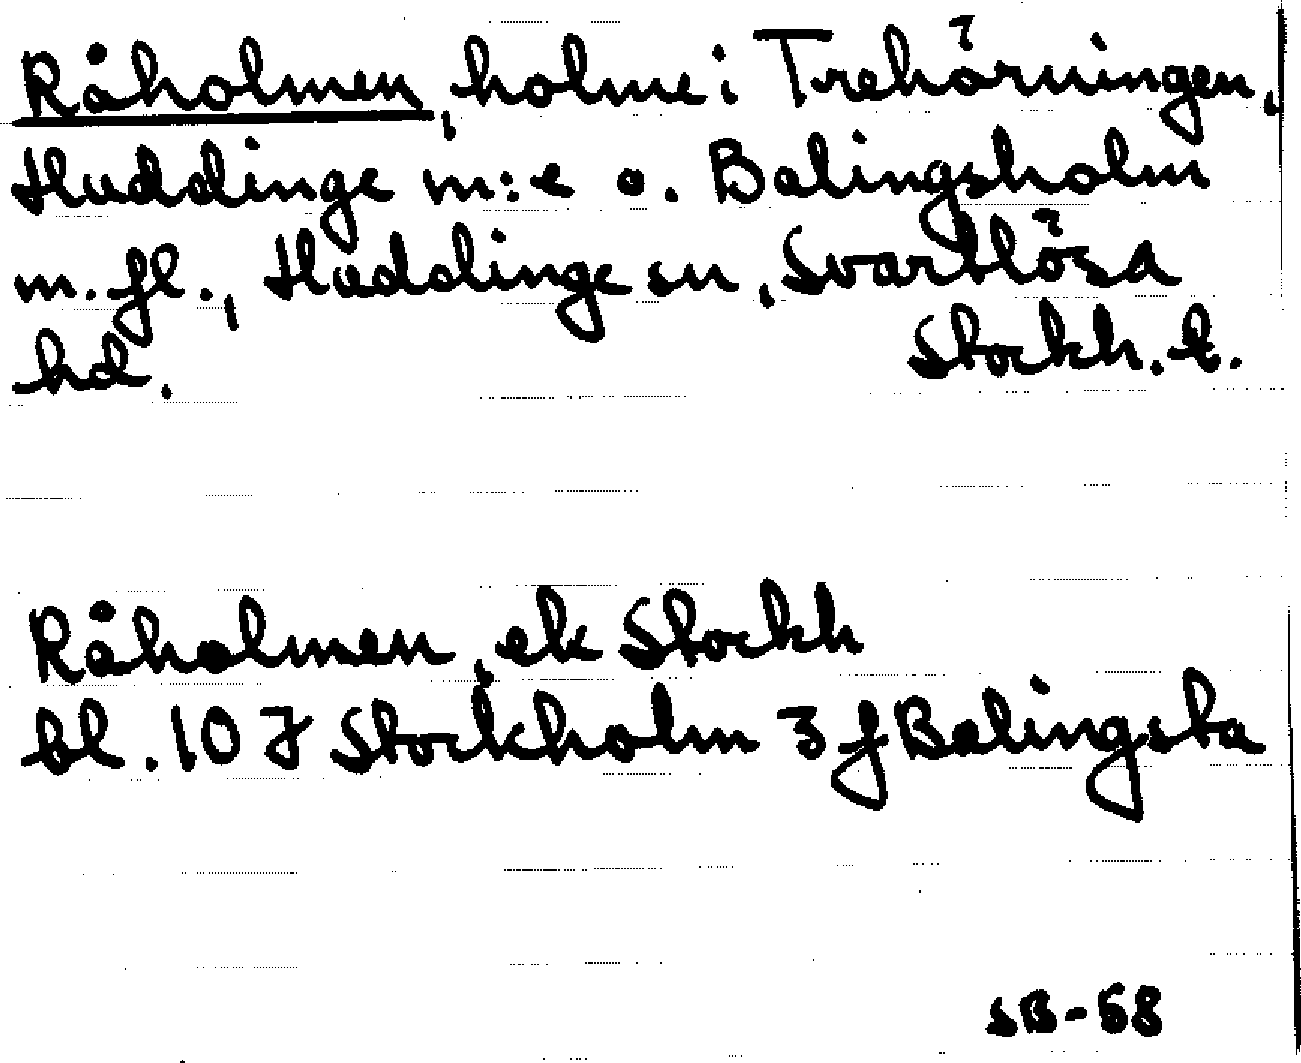 Råholmen, holme i Trehörningen,
Huddinge m:e o. Balingsholm
m.fl., Huddinge sn, Svartlösa
hd. Stockh. l.
Råholmen, ek Stockh
bl. 10 J Stockholm 3 f Balingsta
SB-68